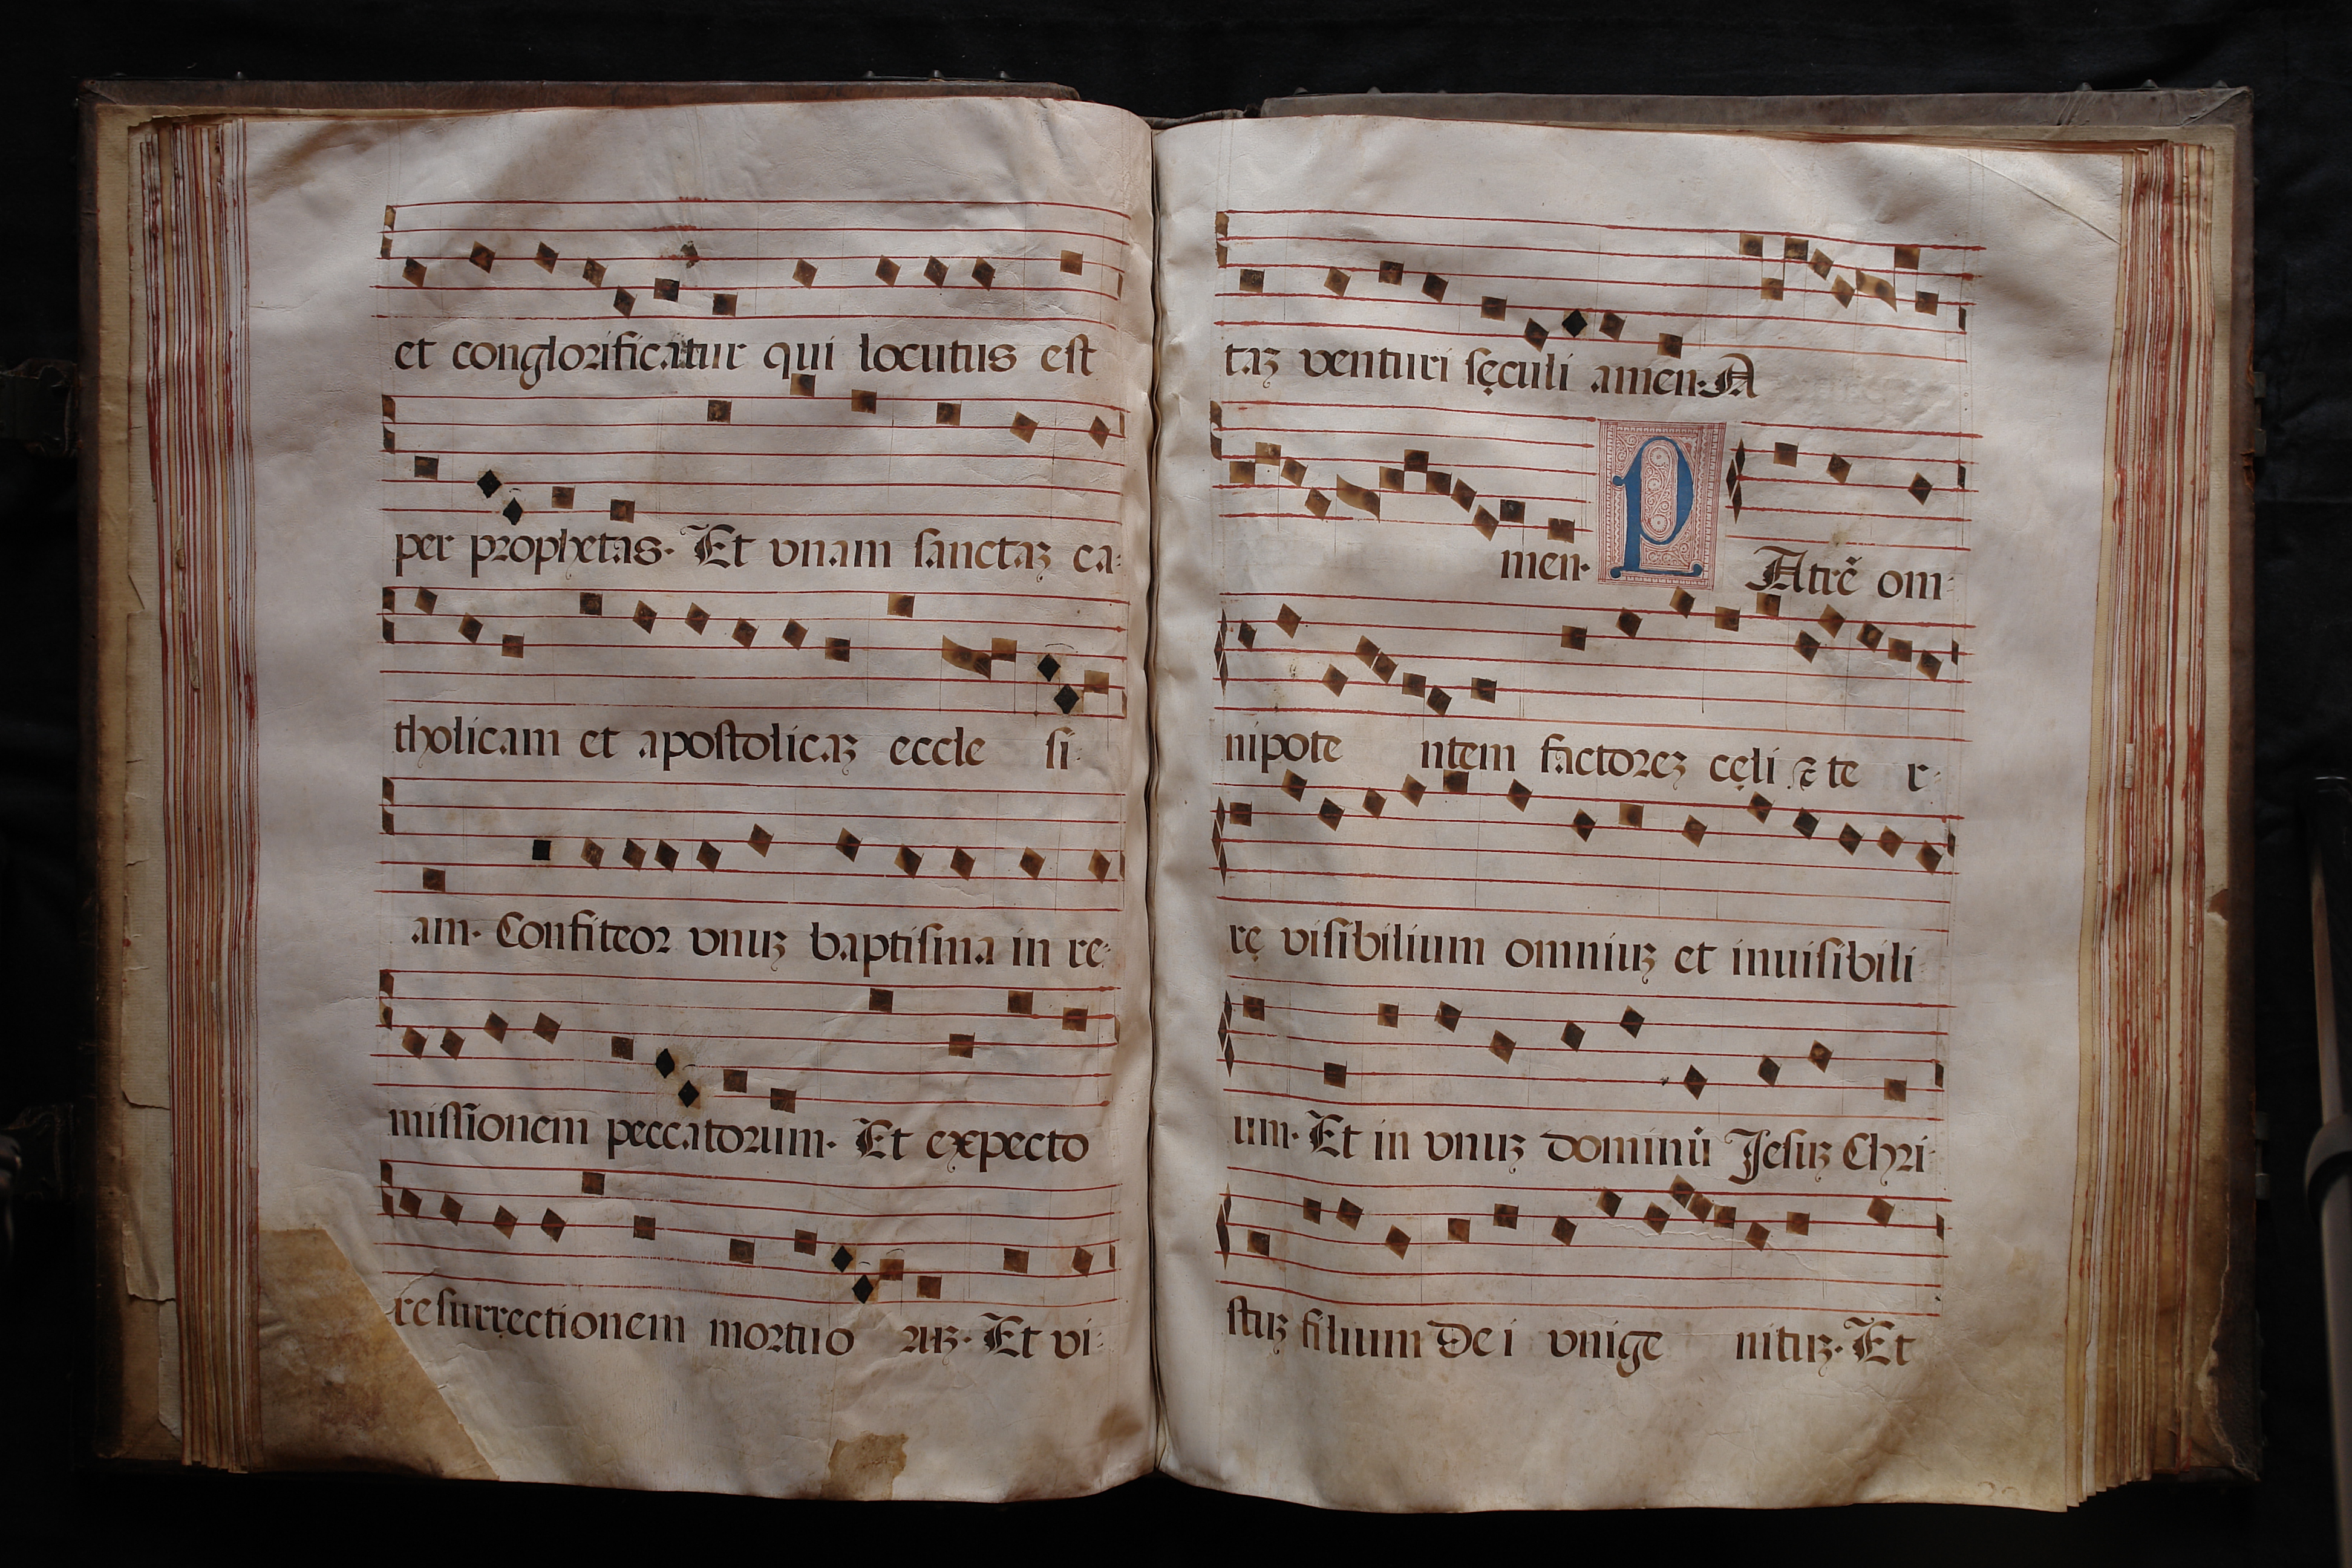 et conglorificatur qui locutus est
per prophetas. Et vnam sanctaȝ ca-
tholicam et apostolicaȝ eccle si-
am. Confiteor vnuȝ baptisma in re-
missionem peccatorum. Et expecto
resurrectionem mortuo ruȝ. Et vi-
taȝ venturi sęculi amen. A
men. P Atrẽ om-
nipote ntem factoreȝ cęli ⁊ te r-
rę visibilium omniuȝ et inuisibili-
um. Et in vnuȝ dominũ Jesuȝ Chri-
stuȝ filium Dei vnige nituȝ. Et